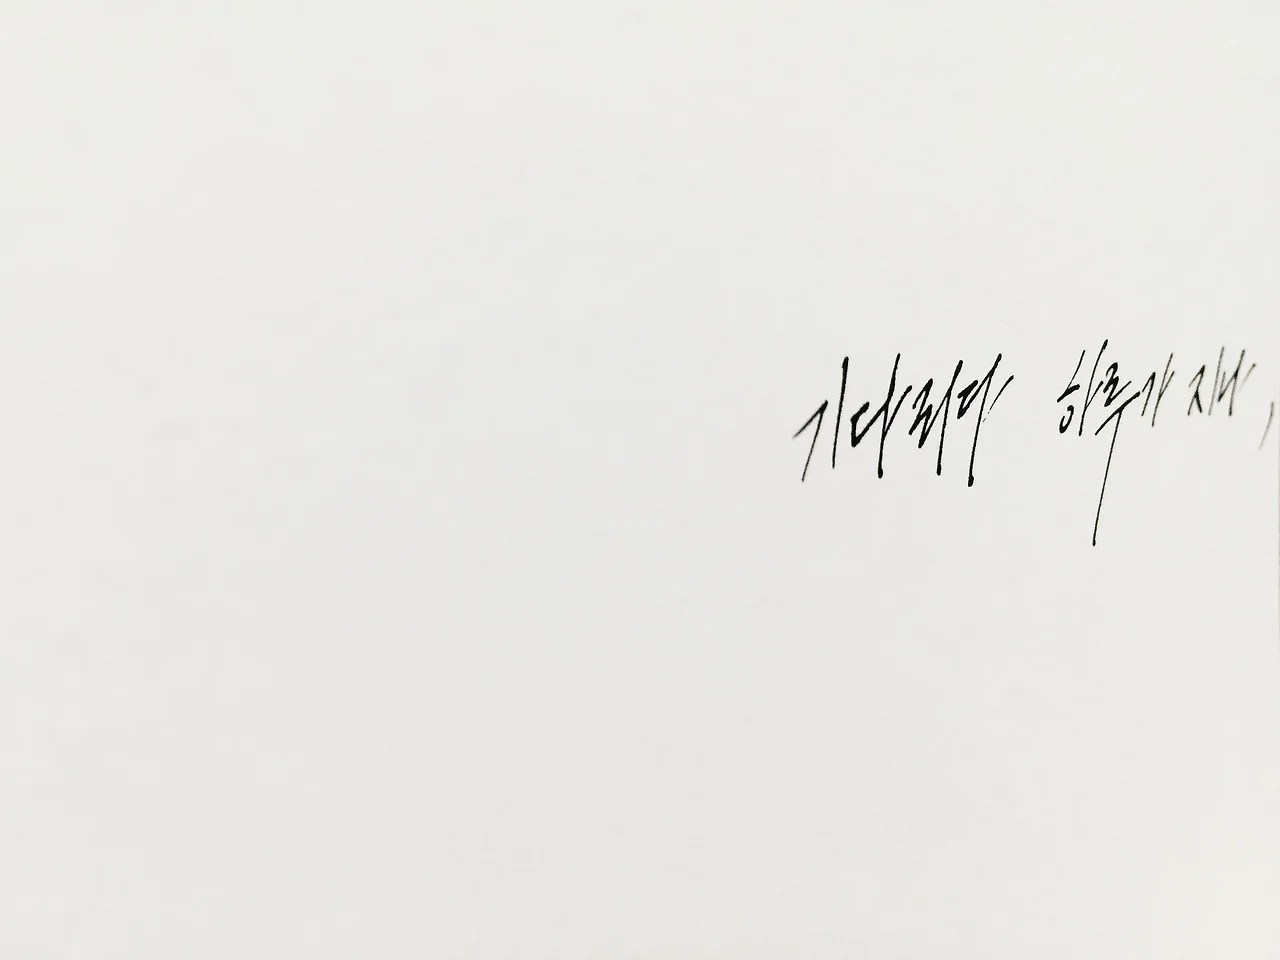 기다리다 하루가 지나,